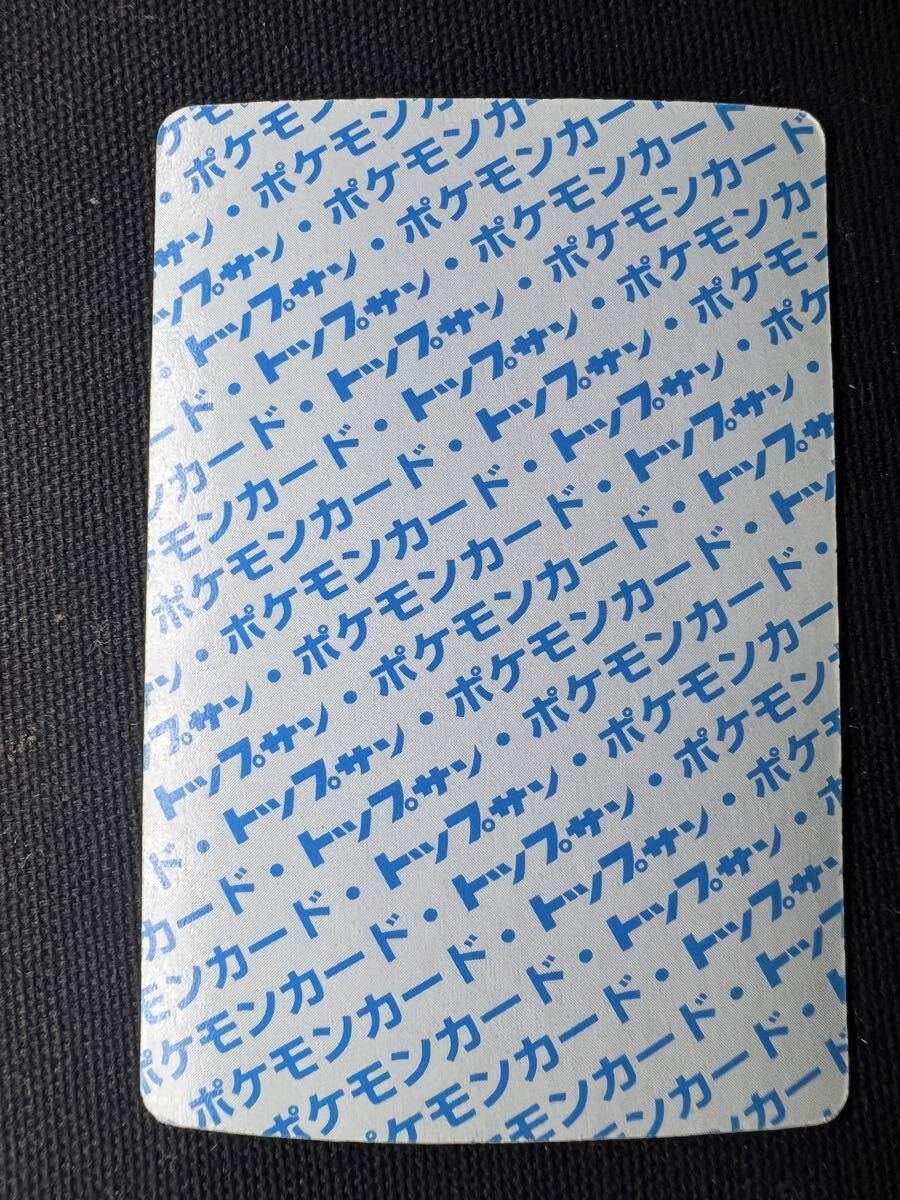 ケ
・ポケモンカ
サン・ポケモンカ
ップサン・ポケモンカ
・トップサン・ポケモンカー
ード・トップサン・ポケモンカー
ンカード・トップサン・ポケモンカード
モンカード・トップサン・ポケモンカー
ポケモンカード・トップサン・ポケモン
・ポケモンカード・トップサン・ポケ
ン・ポケモンカード・トップサン・
プサン・ポケモンカード・トップサ
トップサン・ポケモンカード・トッ
ド・トップサン・ポケモンカード・
カード・トップサン・ポケモンカー
モンカード・トップサン・ポケモン
ポケモンカード・トップサン・ポケ
ポケモンカード・トップサン・ポ
ポケモンカード・トップサ
ケモンカード・トップ
モンカード・ト
カード・